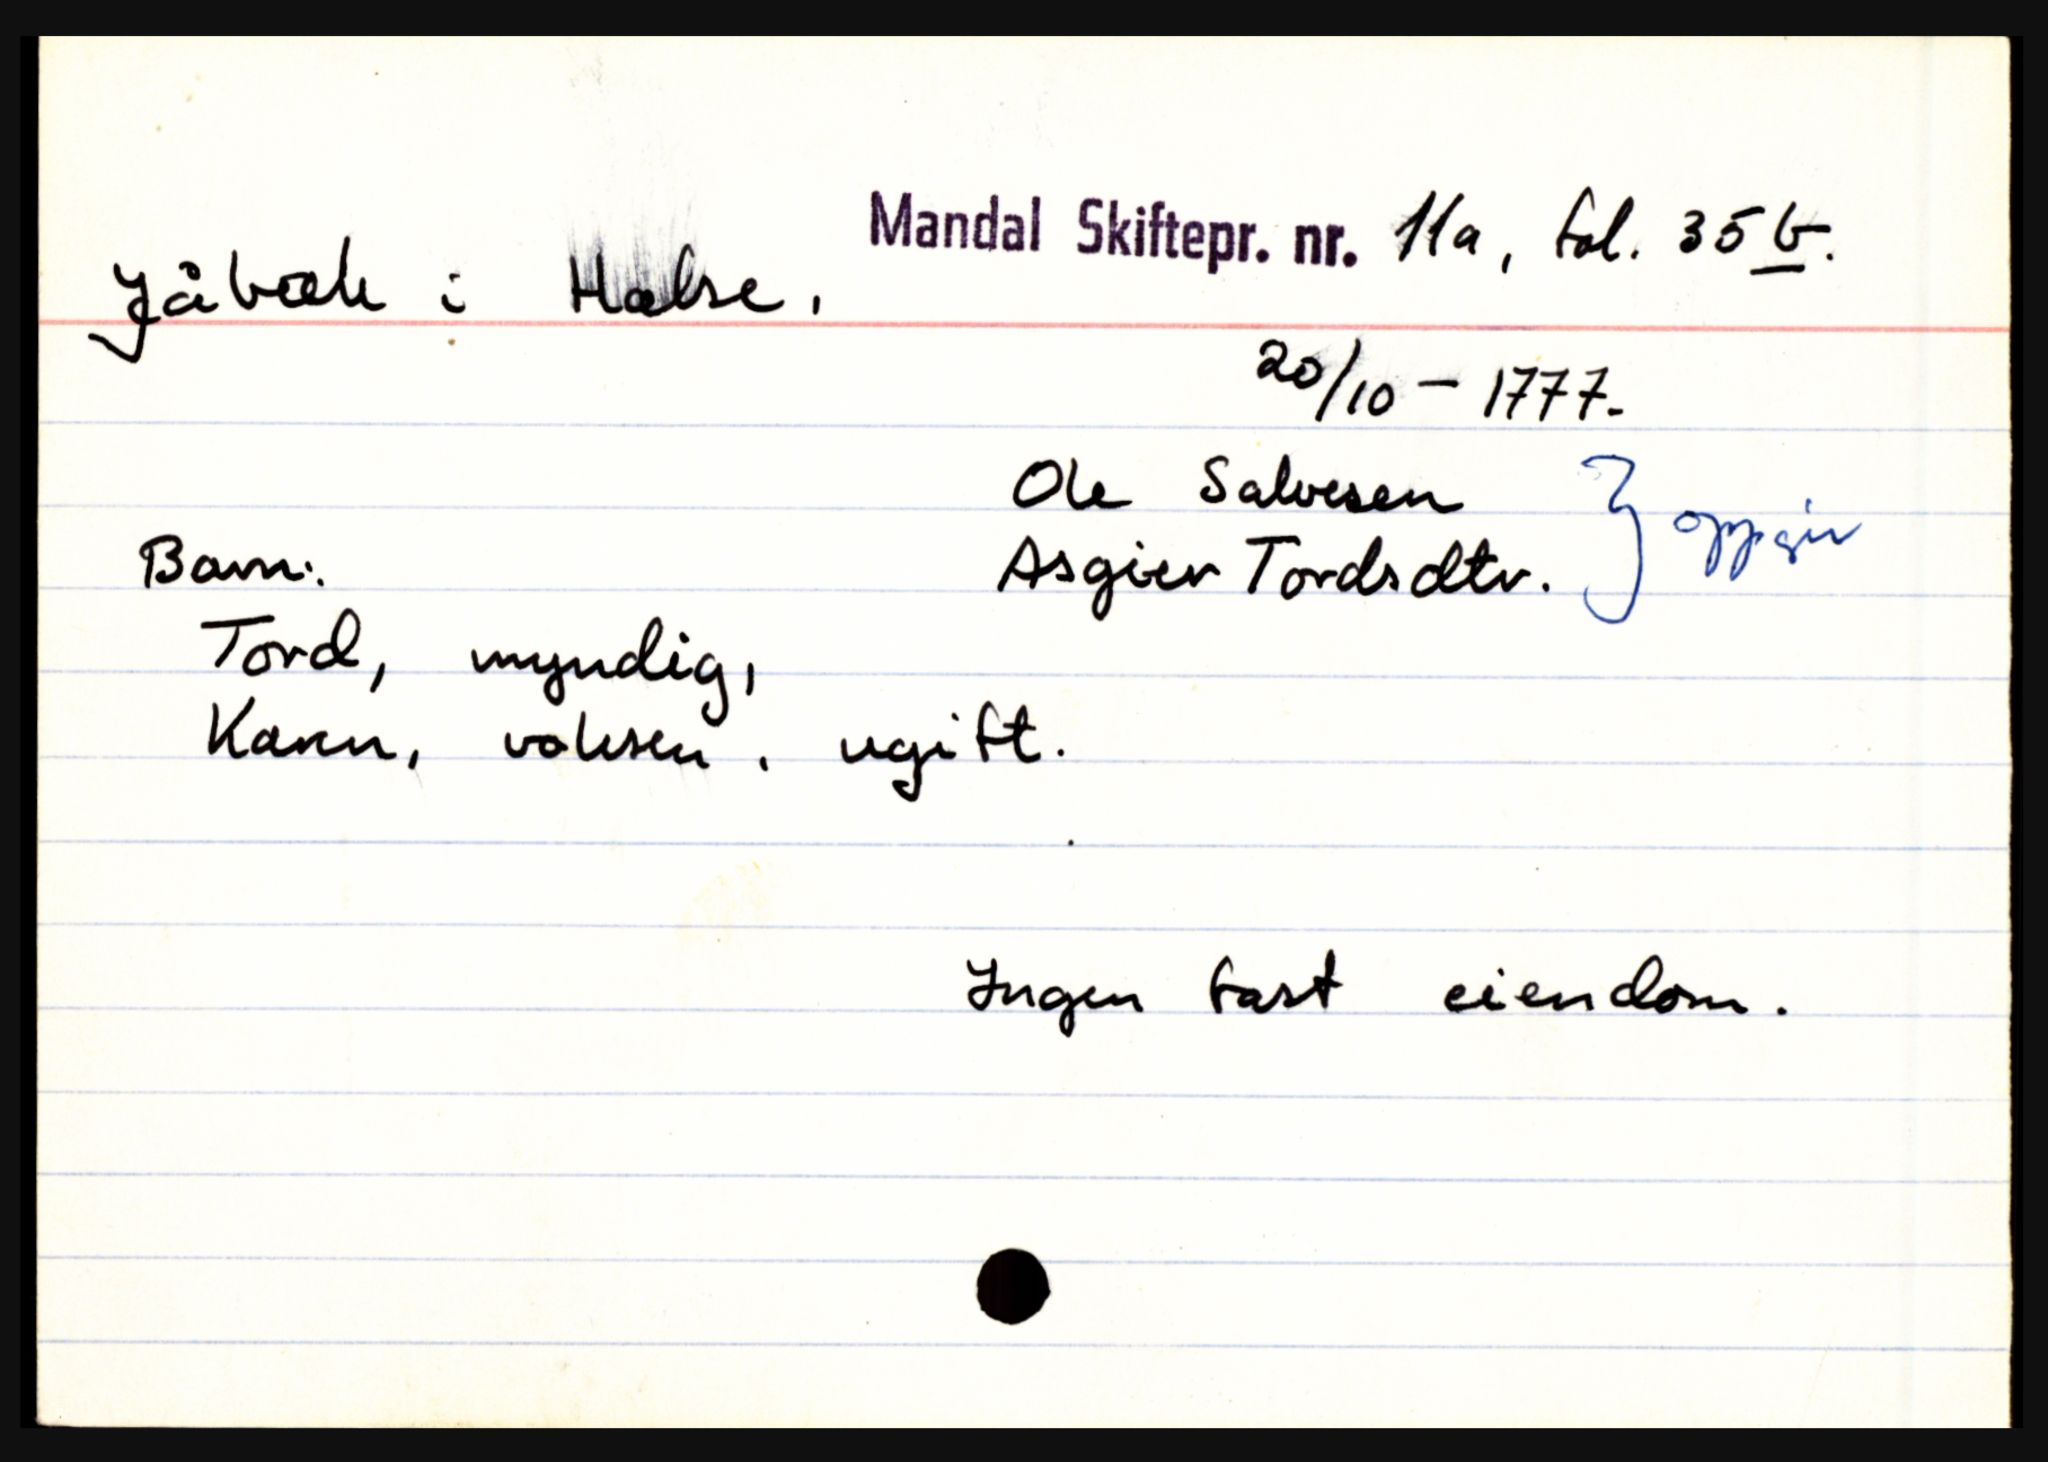 Mandal Skiftepr. nr. 11a, fol. 35b.
Jåbæk i Halse.
20/10 - 1777.
Ole Salvesen
Asgier Tordsdtr. } oppgir
Barn:
Tord, myndig,
Karen, voksen, ugift.
Ingen fast eiendom.